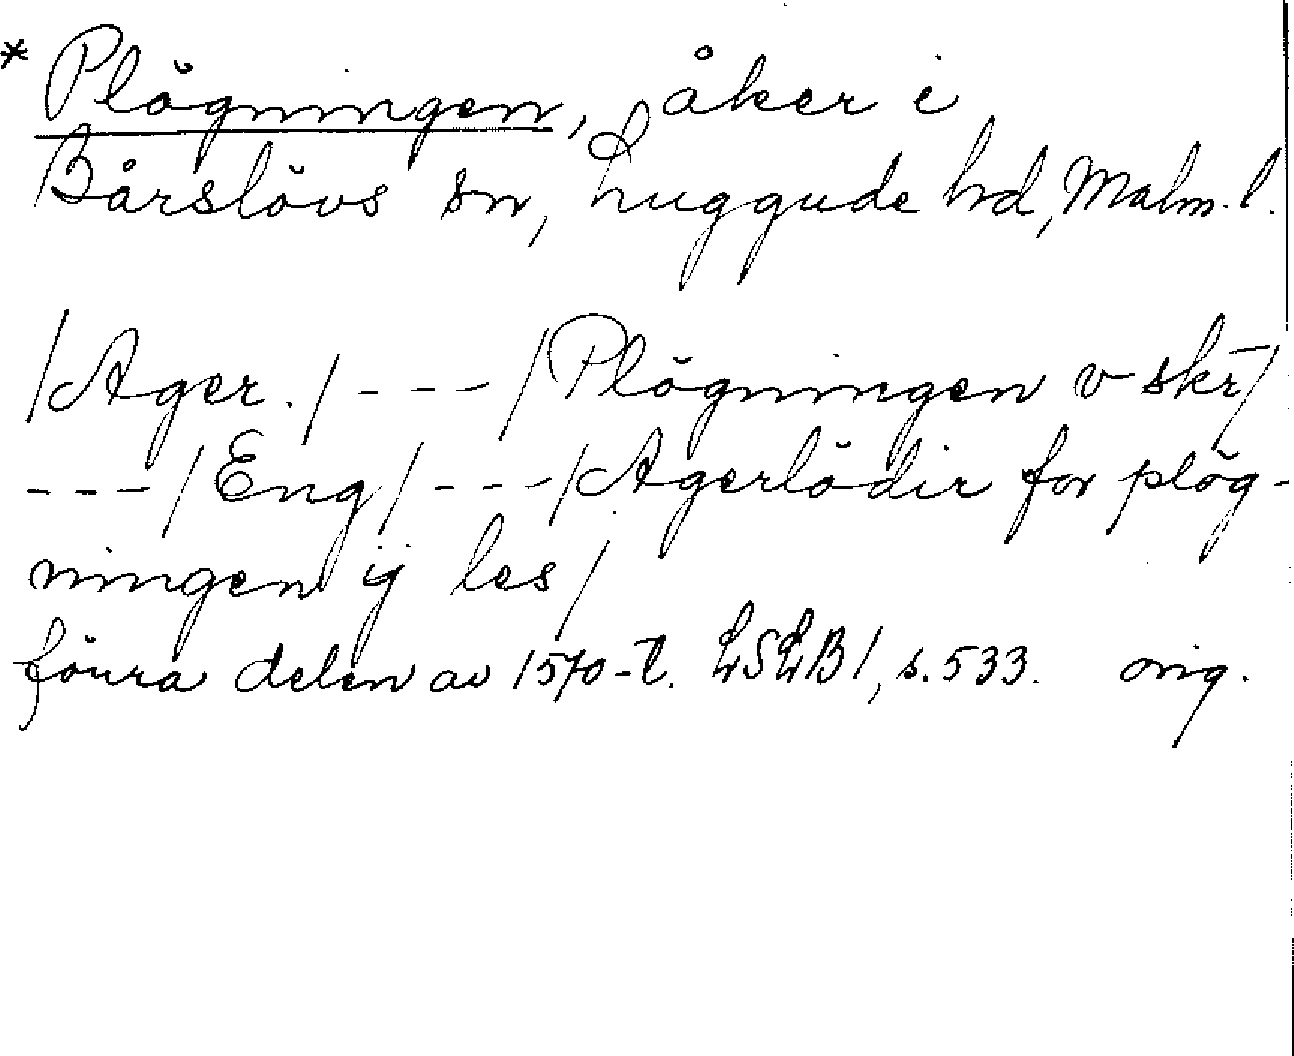 * Plögningen, åker i
Bårslövs sn, Luggude hd, Malm. l.
/Ager./ --- /Plögningen v skr̄/
---/Eng/ ---/Agerlödir for plög-
ningen ij les/
förra delen av 1570-t. LSLB1, s. 533. orig.